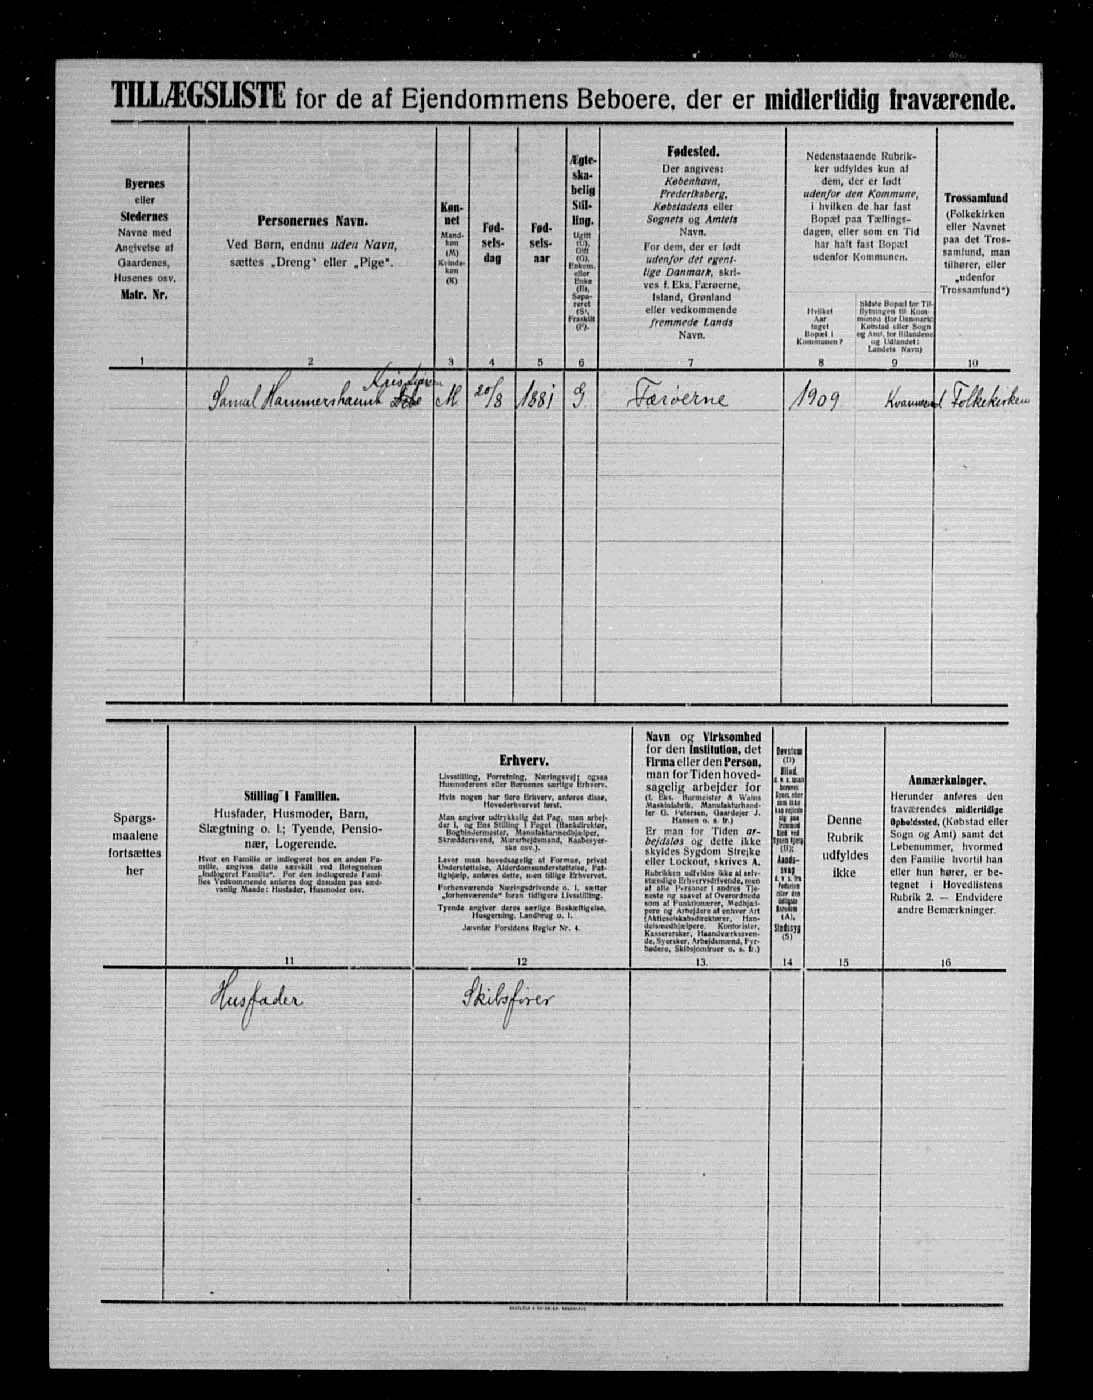 TILLÆGSLISTE for de af Ejendommens Beboere, der er midlertidig fraværende.
Byernes
eller
Stedernes
Navne med
Angivelse af
Gaardenes,
Husenes osv.
Matr. Nr.
1
Personernes Navn.
Ved Børn, endnu uden Navn,
sættes „Dreng" eller „Pige".
2
Køn-
net
Mand-
køn
(M)
Kvinde-
køn
(K)
3
Fød-
sels-
dag
4
Fød-
sels-
aar
5
Ægte-
ska-
belig
Stil-
ling.
Ugift
(U),
Gift
(G),
Enkem.
eller
Enke
(E),
Sepa-
reret
(S),
Fraskilt
(F).
6
Fødested.
Der angives:
København,
Frederiksberg,
Købstadens eller
Sognets og Amtets
Navn.
For dem, der er født
udenfor det egent-
lige Danmark, skri-
ves f. Eks. Færøerne,
Island, Grønland
eller vedkommende
fremmede Lands
Navn.
7
Nedenstaaende Rubrik-
ker udfyldes kun af
dem, der er født
udenfor den Kommune,
i hvilken de har fast
Bopæl paa Tællings-
dagen, eller som en Tid
har haft fast Bopæl
udenfor Kommunen.
Hvilket
Aar
taget
Bopæl i
Kommunen?
8
Sidste Bopæl før Til-
flytningen til Kom-
munen (for Danmark:
Købstad eller Sogn
og Amt, for Bilandene
og Udlandet:
Landets Navn)
9
Trossamfund
(Folkekirken
eller Navnet
paa det Tros-
samfund, man
tilhører, eller
„udenfor
Trossamfund")
10
Samal Hammershaimb Kristjansen M 20/8 1881 G Færøerne 1909 Kvannesund Folkekirken
Spørgs-
maalene
fortsættes
her
Stilling i Familien.
Husfader, Husmoder, Barn,
Slægtning o. l.; Tyende, Pensio-
nær, Logerende.
Hvor en Familie er indlogeret hos en anden Fa-
milie, angives dette særskilt ved Betegnelsen
„Indlogeret Familie". For den indlogerede Fami-
lies Vedkommende anføres dog desuden paa sæd-
vanlig Maade: Husfader, Husmoder osv.
11
Erhverv.
Livsstilling, Forretning, Næringsvej; ogsaa
Husmoderens eller Børnenes særlige Erhverv.
Hvis nogen har flere Erhverv, anføres disse,
Hovederhvervet først.
Man angiver udtrykkelig det Fag, man arbej-
der i, og Ens Stilling i Faget (Bankdirektør,
Bogbindermester, Manufakturmedhjælper,
Skræddersvend, Murarbejdsmand, Kasbesyer-
ske osv.).
Lever man hovedsagelig af Formue, privat
Understøttelse, Alderdomsunderstøttelse, Fat-
tighjælp, anføres dette, men tillige Erhvervet.
Forhenværende Næringsdrivende o. l. sætter
„forhenværende" foran tidligere Livsstilling.
Tyende angiver deres særlige Beskæftigelse,
Husgerning, Landbrug o. l.
Jævnfør Forsidens Regler Nr. 4.
12
Navn og Virksomhed
for den Institution, det
Firma eller den Person,
man for Tiden hoved-
sagelig arbejder for
(f. Eks. Burmeister & Wains
Maskinfabrik, Manufakturhand-
ler G. Petersen, Gaardejer J.
Hansen o. s. fr.)
Er man for Tiden ar-
bejdsløs og dette ikke
skyldes Sygdom Strejke
eller Lockout, skrives A.
Rubrikken udfyldes ikke af selv-
stændige Erhvervsdrivende, men
af alle Personer i andres Tje-
neste og saavel af Overordnede
som af Funktionærer, Medhjæl-
pere og Arbejdere af enhver Art
(Aktieselskabsdirektører, Han-
delsmedhjælpere, Kontorister,
Kassererksker, Haandværkssven-
de, Syersker, Arbejdsmænd, Fyr-
bødere, Skibsjomfruer o. s. fr.)
13.
Døvstum
(D)
Blind
Aands-
svag
(A),
Sindssyg
(S)
14
Denne
Rubrik
udfyldes
ikke
15
Anmærkninger.
Herunder anføres den
fraværendes midlertidige
Opholdssted, (Købstad eller
Sogn og Amt) samt det
Løbenummer, hvormed
den Familie hvortil han
eller hun hører, er be-
tegnet i Hovedlistens
Rubrik 2. — Endvidere
andre Bemærkninger.
16
Husfader Skibsfører